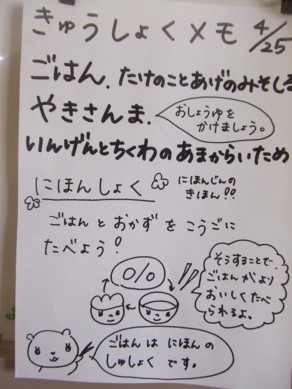 きゅうしょくメモ 4/25
ごはん、たけのことあげのみそしる
やきさんま、
おしょうゆを
かけましょう。
いんげんとちくわのあまからいため
にほんしょく
にほんじんの
きほん!!
ごはんとおかずをこうごに
たべよう!
そうすることで、
ごはんがより
おいしくたべ
られるよ。
ごはんは にほんの
しゅしょく です。